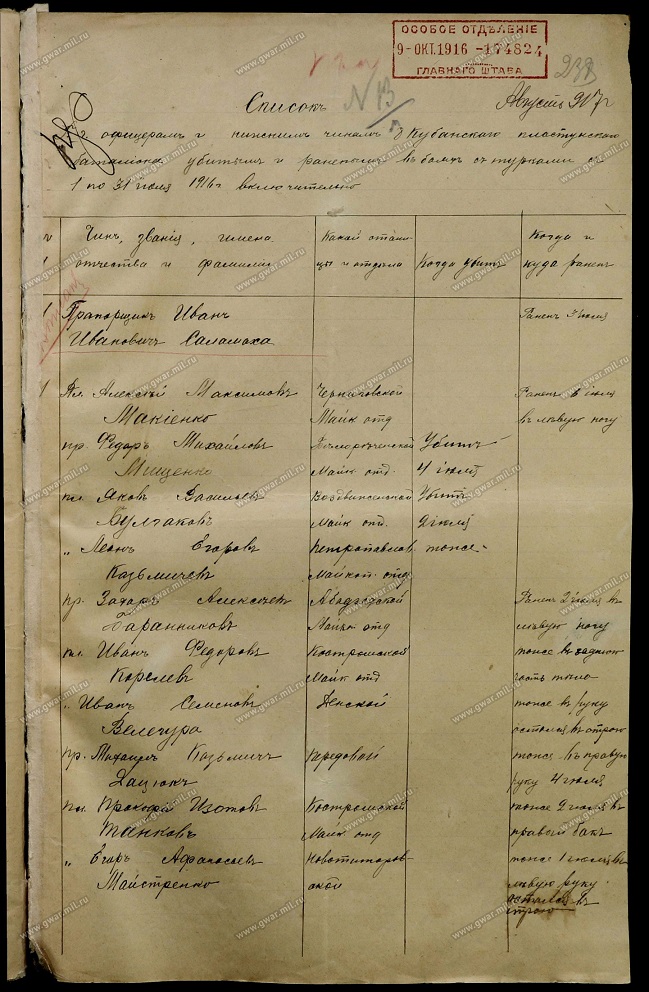 ОСОБОЕ ОТДѢЛЕНІЕ
9-ОКТ.1916-174824
ГЛАВНАГО ШТАБА
238
Списокъ № 13 Августъ 917г
офицерамъ и нижнимъ чинамъ Кубанскаго пластунскаго
баталіона убитымъ и раненымъ въ бояхъ съ турками съ
1 по 31 іюля 1916г включительно
Чинъ, званія, имена
отчества и фамиліи
Какой стани-
цы и отдѣла
Когда убитъ
Когда и
куда раненъ
1 Прапорщикъ Иванъ
Ивановичъ Саламаха
Раненъ іюля
1 Пл. Алексѣй Максимовъ
Макіенко
Черниговской
Майк отд
Раненъ іюля
въ лѣвую ногу
пр. Федоръ Михайловъ
Мищенко
Бѣлорѣченской
Майк отд.
Убитъ
4 іюля
пл. Яковъ Васильевъ
Булгаковъ
Воздвиженской
Майк отд.
Убитъ
2 іюля
„ Леонъ Егоровъ
Казьмичевъ
Петропавлов
Майкоп. отд
тоже -
пр. Захаръ Алексѣевъ
Баранниковъ
Абадзехской
Майк отд
Раненъ 2 іюля въ
лѣвую ногу
пл. Иванъ Федоровъ
Королевъ
Костромской
Майк отд
тоже въ заднюю
часть тѣла
„ Иванъ Семеновъ
Велегура
Динской
тоже въ руку
остался въ строю
пр. Михаилъ Казьмичъ
Дацюкъ
Передовой
тоже въ правую
руку 4 іюля
пл. Прокофій Изотовъ
Танковъ
Костромской
Майк отд
тоже 2 іюля въ
правый бокъ
„ Егоръ Афанасьевъ
Майстренко
Новотиторов-
ской
тоже 1 іюля въ
лѣвую руку
остался въ
строю
www.gwar.mil.ru